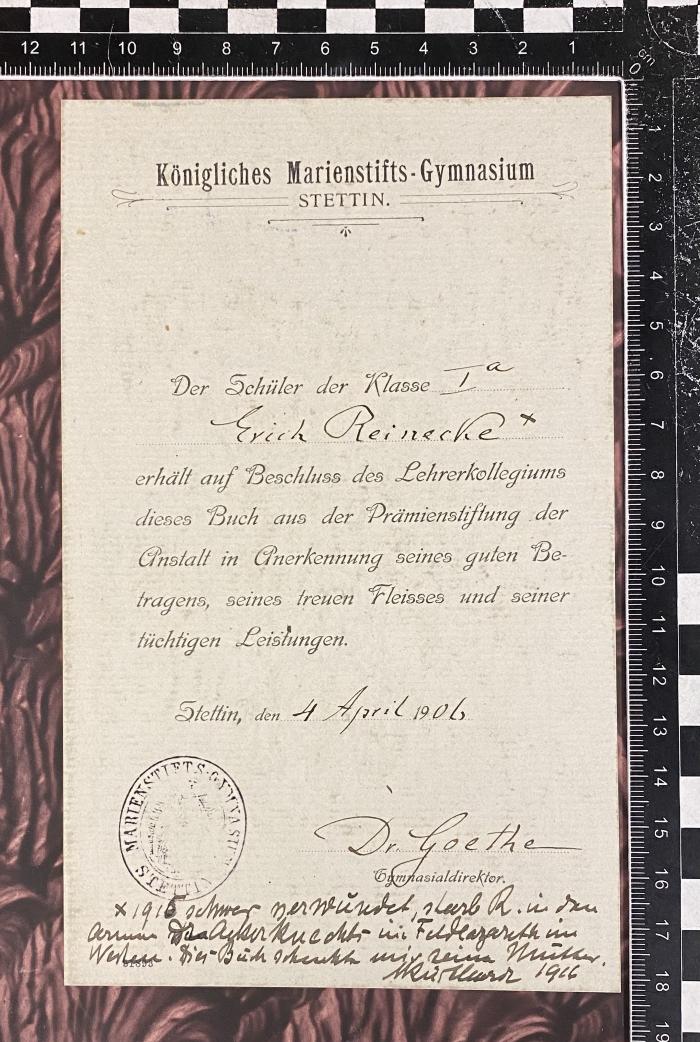 12 11 10 9 8 7 6 5 4 3 2 1 0 cm
1 2 3 4 5 6 7 8 9 10 11 12 13 14 15 16 17 18 19
Königliches Marienstifts-Gymnasium
STETTIN.
Der Schüler der Klasse Iª
Erich Reinecke ×
erhält auf Beschluss des Lehrerkollegiums
dieses Buch aus der Prämienstiftung der
Anstalt in Anerkennung seines guten Be-
tragens, seines treuen Fleisses und seiner
tüchtigen Leistungen.
Stettin, den 4 April 1906
MARIENSTIFTS-GYMNASIUM STETTIN
Dr. Goethe
Gymnasialdirektor.
× 1915 schwer verwundet, starb R. in den
Armen Ackerknechts im Feldlazareth im
Westen. Dies Buch schenkte mir seine Mutter.
1916